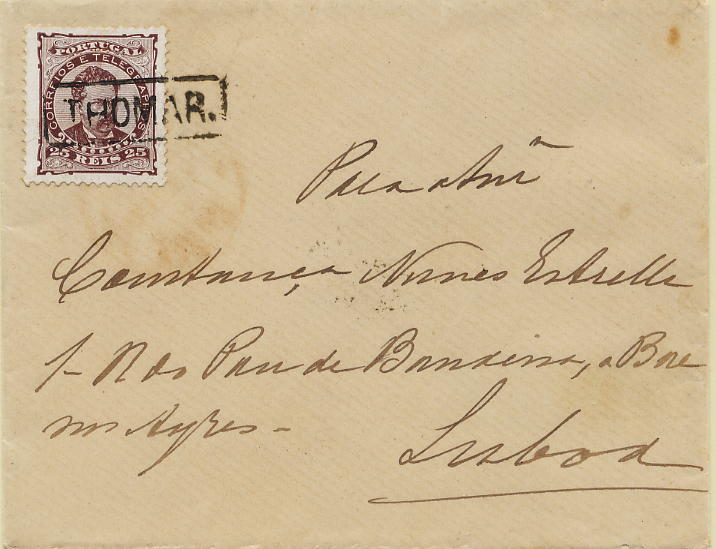 PORTUGAL
CORREIOS E TELEGRAPHOS
25 REIS 25
THOMAR.
Para a Snrª
Constança Nunes Estrella
1- R do Pau de Bandeira, a Bue
nos Ayres -
Lisboa